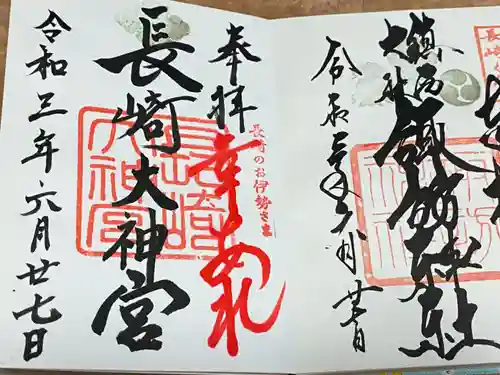 鎮西
大社
諏訪神社
令和三年六月廿七日
奉拝
長崎のお伊勢さま
幸あれ
長崎大神宮
長崎
大神宮
令和三年六月廿七日